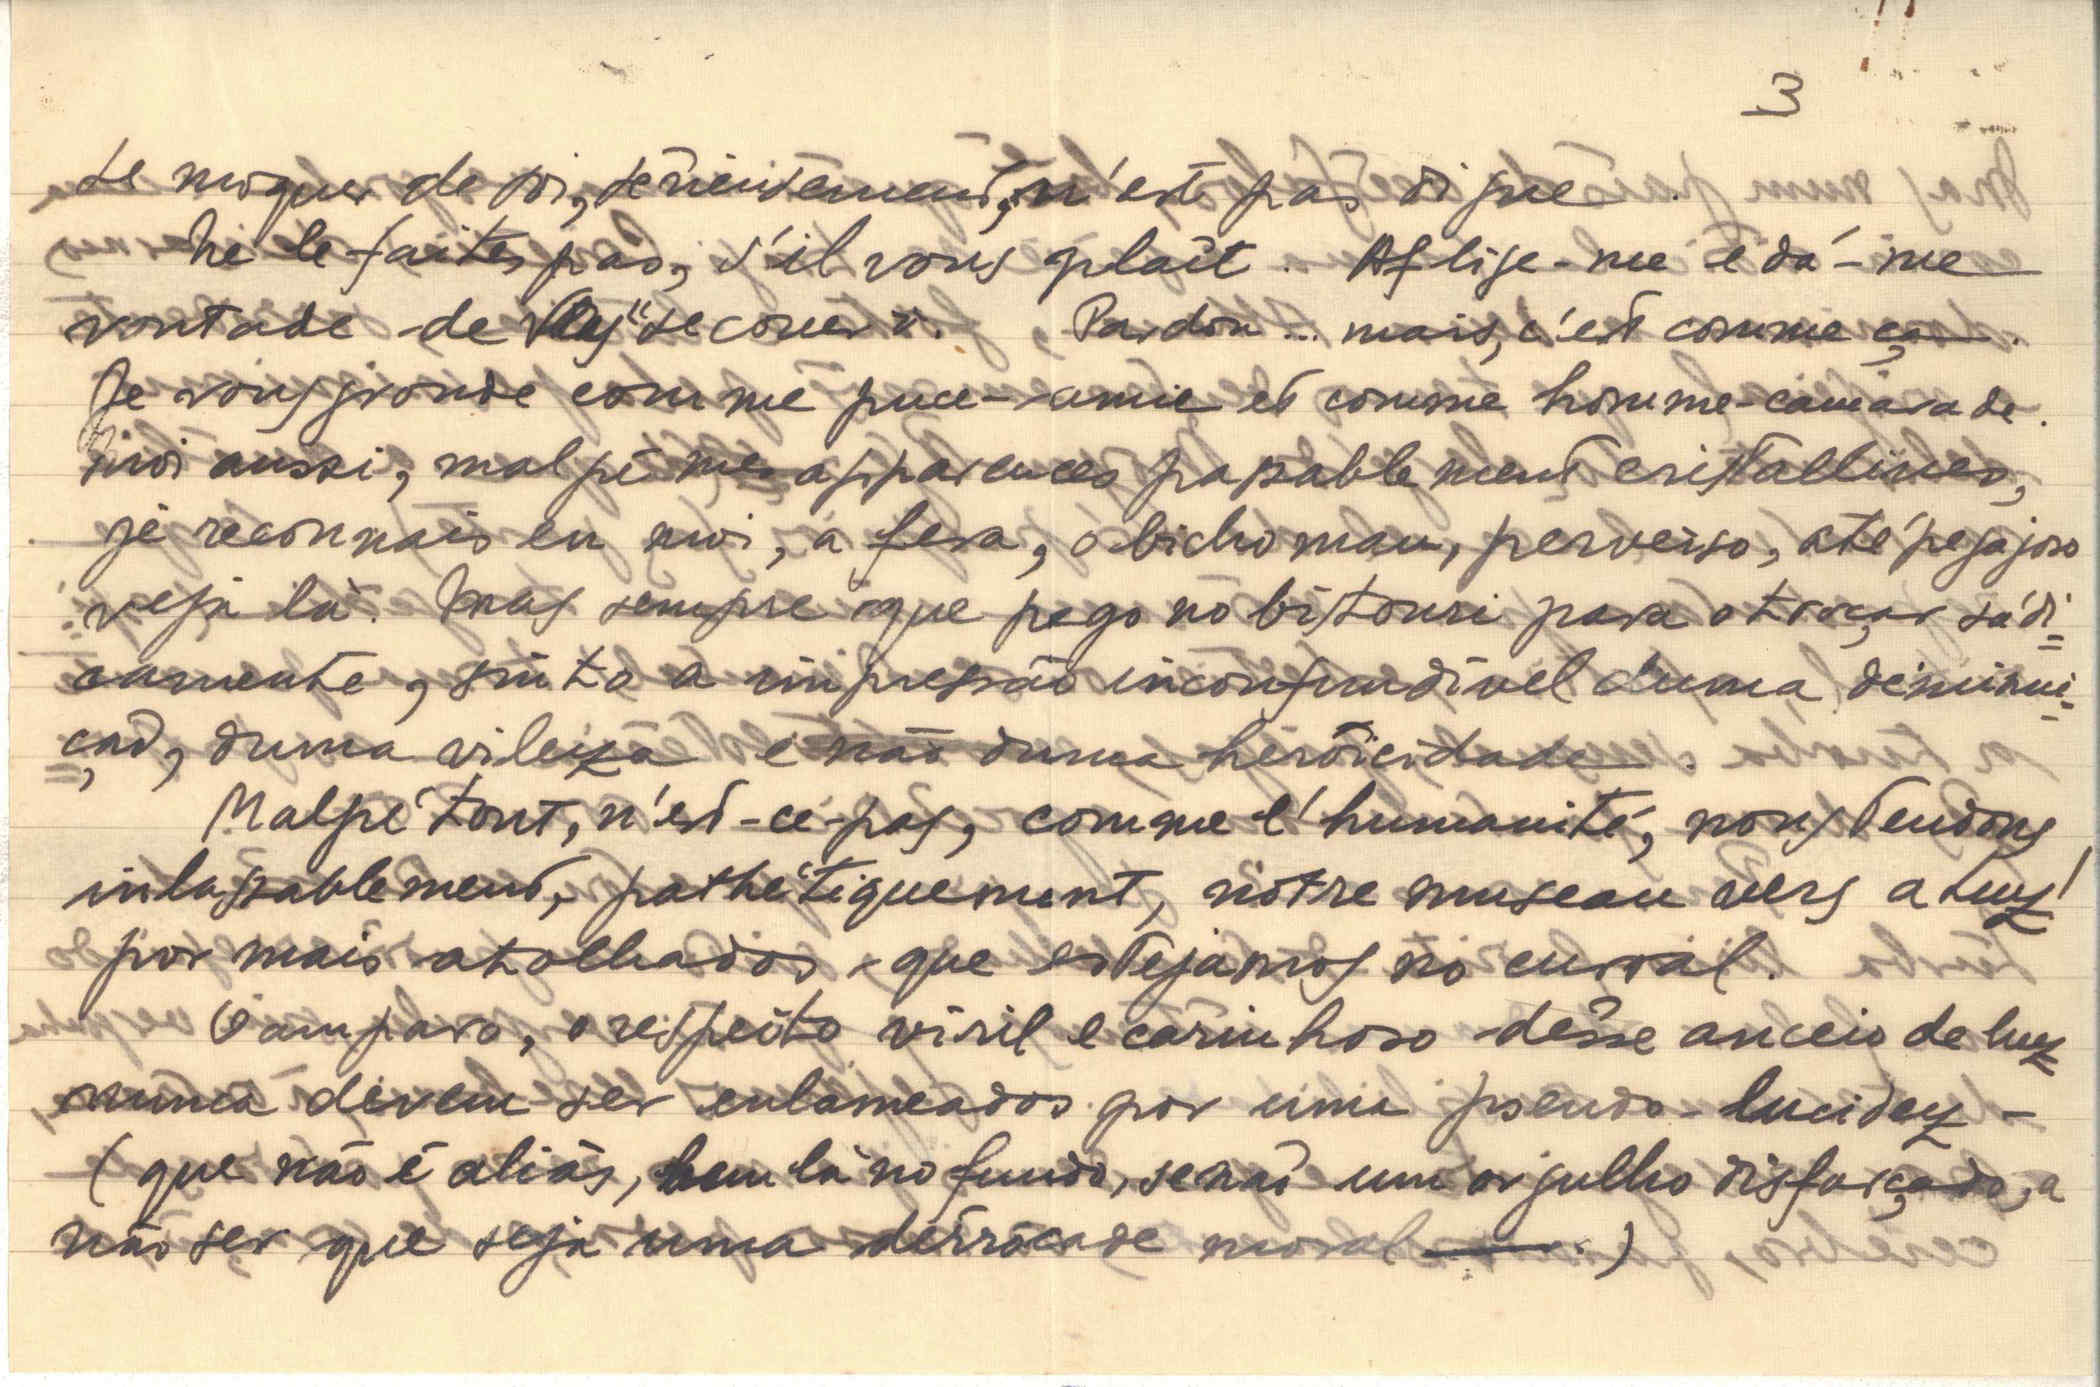 3
se moquer de soi, sérieusement, n'est pas digne.
Ne le faites pas, s'il vous plaît. Aflige-me e dá-me
vontade de "secouer". Pardon... mais, c'est comme ça.
Je vous gronde comme puce-amie et comme homme-camarade.
Moi aussi, malgré mes apparences passablement cristallines,
je reconnais en moi, a fera, o bicho mau, perverso, até pegajoso
veja lá. Mas sempre que pego no bistouri para atroçar sádi=
camente, sinto a impressão inconfundível duma diminui=
ção, duma vileza e não duma heròicidade.
Malgré tout, n'est-ce-pas, comme l'humanité, nous tendons
inlassablement, pathétiquement, notre museau vers a luz!
por mais atolhados que estejamos no curral.
O amparo, o respeito viril e carinhoso dêsse anceio de luz
nunca devem ser enlameados por uma pseudo-lucidez -
(que não é aliás, bem lá no fundo, senão um orgulho disfarçado, a
não ser que seja uma dérrocade moral —.)